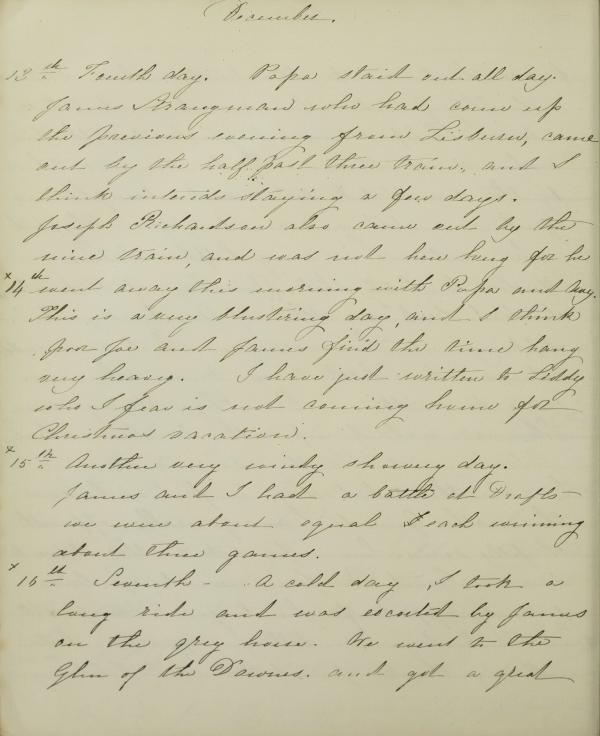 December.
13th. Fourth day. Papa staid out all day.
James Strangman who had come up
the previous evening from Lisburn, came
out by the half past three train, and I
think intends staying a few days.
Joseph Richardson also came out by the
nine train, and was not here long for he
x14th went away this morning with Papa and
This is a very blustering day, and I think
poor Joe and James find the time hang
very heavy. I have just written to Liddy
who I fear is not coming home for
Christmas vacation.
x15th. Another very windy showery day.
James and I had a battle at Drafts
we were about equal each winning
about three games.
x16th. Seventh - A cold day, I took a
long ride and was escorted by James
on the grey horse. We went to the
Glen of the Downes. and got a great